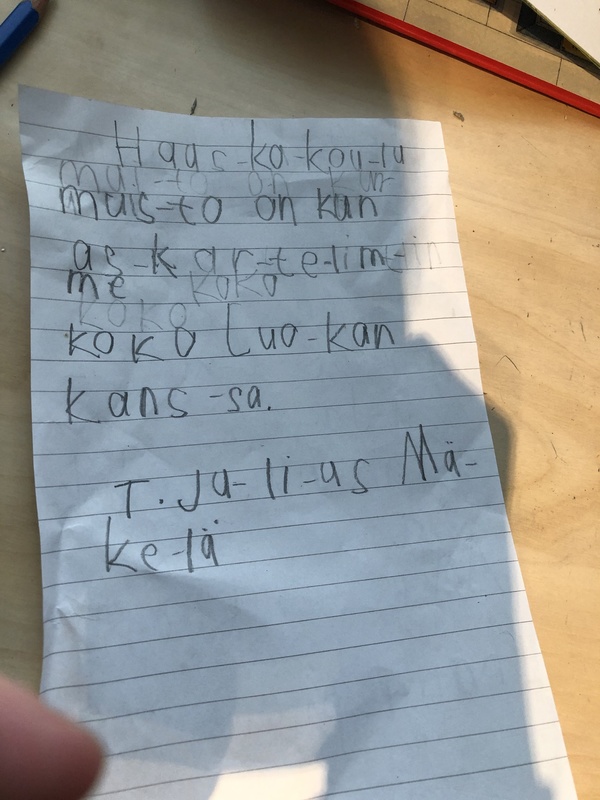 Haus-ka kou-lu
muis-to on kun
as-kar-te-lim-
me koko
koko luo-kan
kans-sa.
T. Ju-li-us Mä-
ke-lä